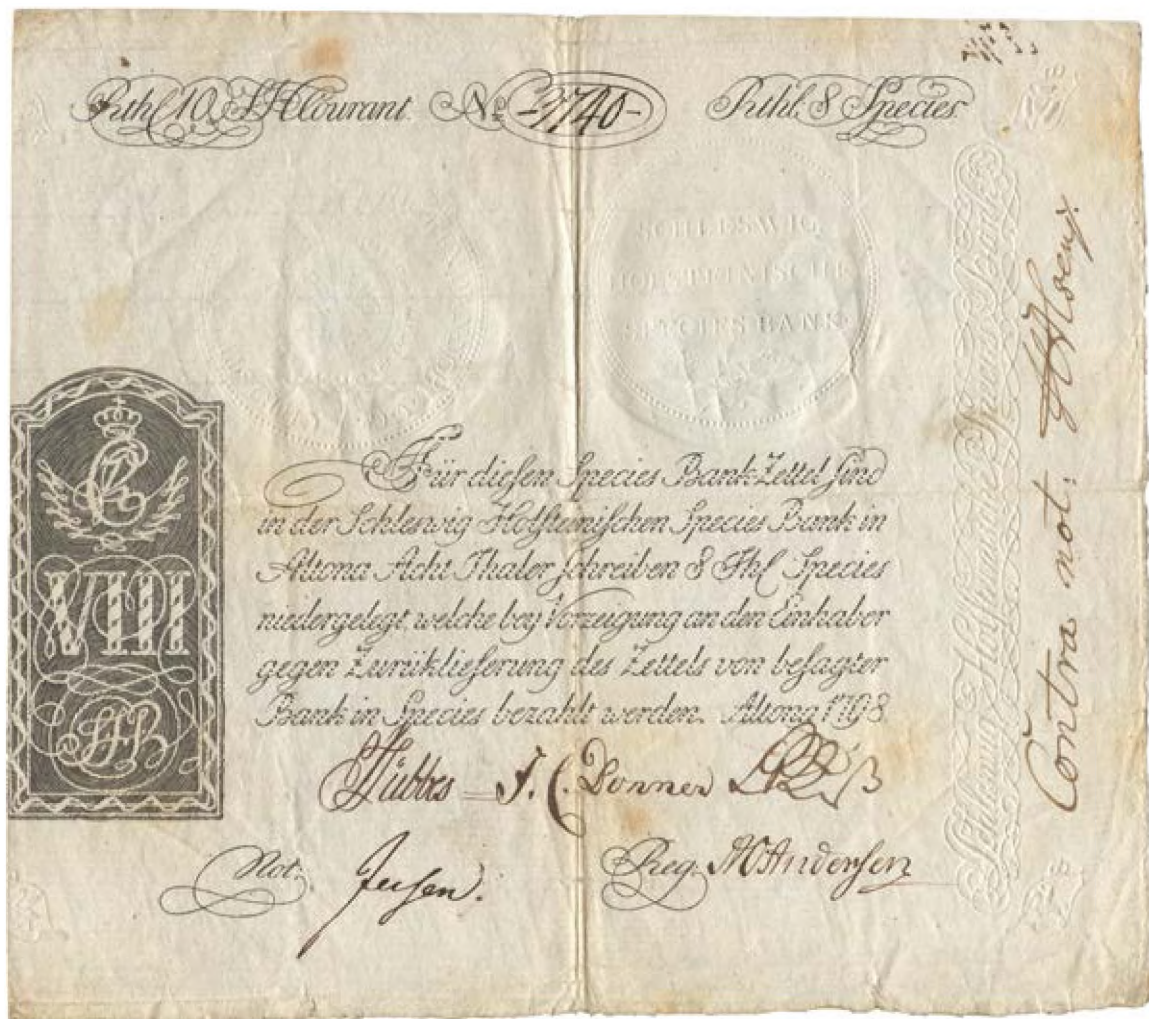 Rthl 10 S.H. Courant. No -7740- Rthl. 8 Species.
SCHLESWIG
HOLSTEINISCHE
SPECIES BANK
VIII
SHB
Für dieſen Species Bank Zettel ſind
in der Schleswig Holſteiniſchen Species Bank in
Altona Acht Thaler ſchreiben 8 Thl Species
niedergelegt, welche bey Vorzeigung an den Einhaber
gegen Zurükliefserung des Zettels von beſagter
Bank in Species bezahlt werden. Altona 1798
Lübbes J. C. Donner
Not: Jensen. Reg: Anderſen
Schleswig Holſteinische Species Bank
Contra not: